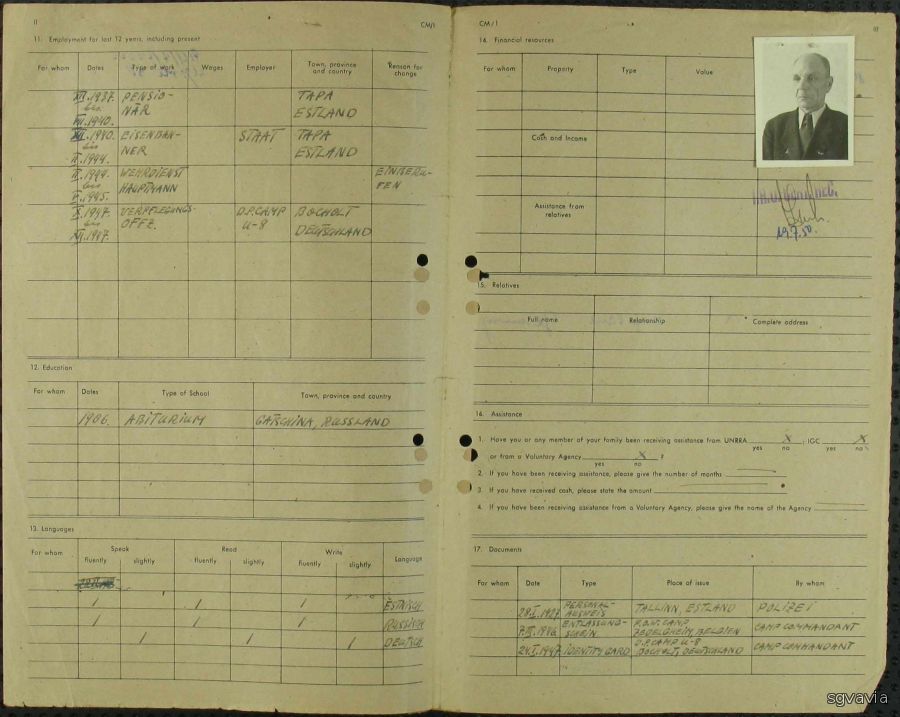 II
CM/1
11. Employment for last 12 years, including present
For whom Dates Type of work Wages Employer Town, province and country Reason for change
XII.1937. PENSIO- TAPA
bis NÄR ESTLAND
1940.
1940. EISENBAH- STAAT TAPA
bis NER ESTLAND
II.1944.
II.1944. WEHRDIENST EINBERU-
bis HAUPTMANN FEN
1945.
X.1947. VERPFLEGUNGS- D.P.CAMP BOCHOLT
bis OFFZ. U-8 DEUTSCHLAND
XII.1947.
12. Education
For whom Dates Type of School Town, province and country
1906. ABITURIUM GATSCHINA, RUSSLAND
13. Languages
For whom Speak Read Write Language
fluently slightly fluently slightly fluently slightly
/ / / ESTNISCH
/ / / RUSSISCH
/ / / DEUTSCH
CM/1
III
14. Financial resources
For whom Property Type Value
Cash and Income
Assistance from relatives
19.7.50.
15. Relatives
Full name Relationship Complete address
16. Assistance
1. Have you or any member of your family been receiving assistance from UNRRA X ; IGC X
yes no yes no
or from a Voluntary Agency X ?
yes no
2. If you have been receiving assistance, please give the number of months
3. If you have received cash, please state the amount
4. If you have been receiving assistance from a Voluntary Agency, please give the name of the Agency
17. Documents
For whom Date Type Place of issue By whom
28.I.1927. PERSONAL- AUSWEIS TALLINN, ESTLAND POLIZEI
1946. ENTLASSUNG- SCHEIN P.O.W. CAMP ZEDELGHEIM, BELGIEN CAMP COMMANDANT
1947. IDENTITY CARD D.P.CAMP U-8 BOCHOLT, DEUTSCHLAND CAMP COMMANDANT
sgvavia